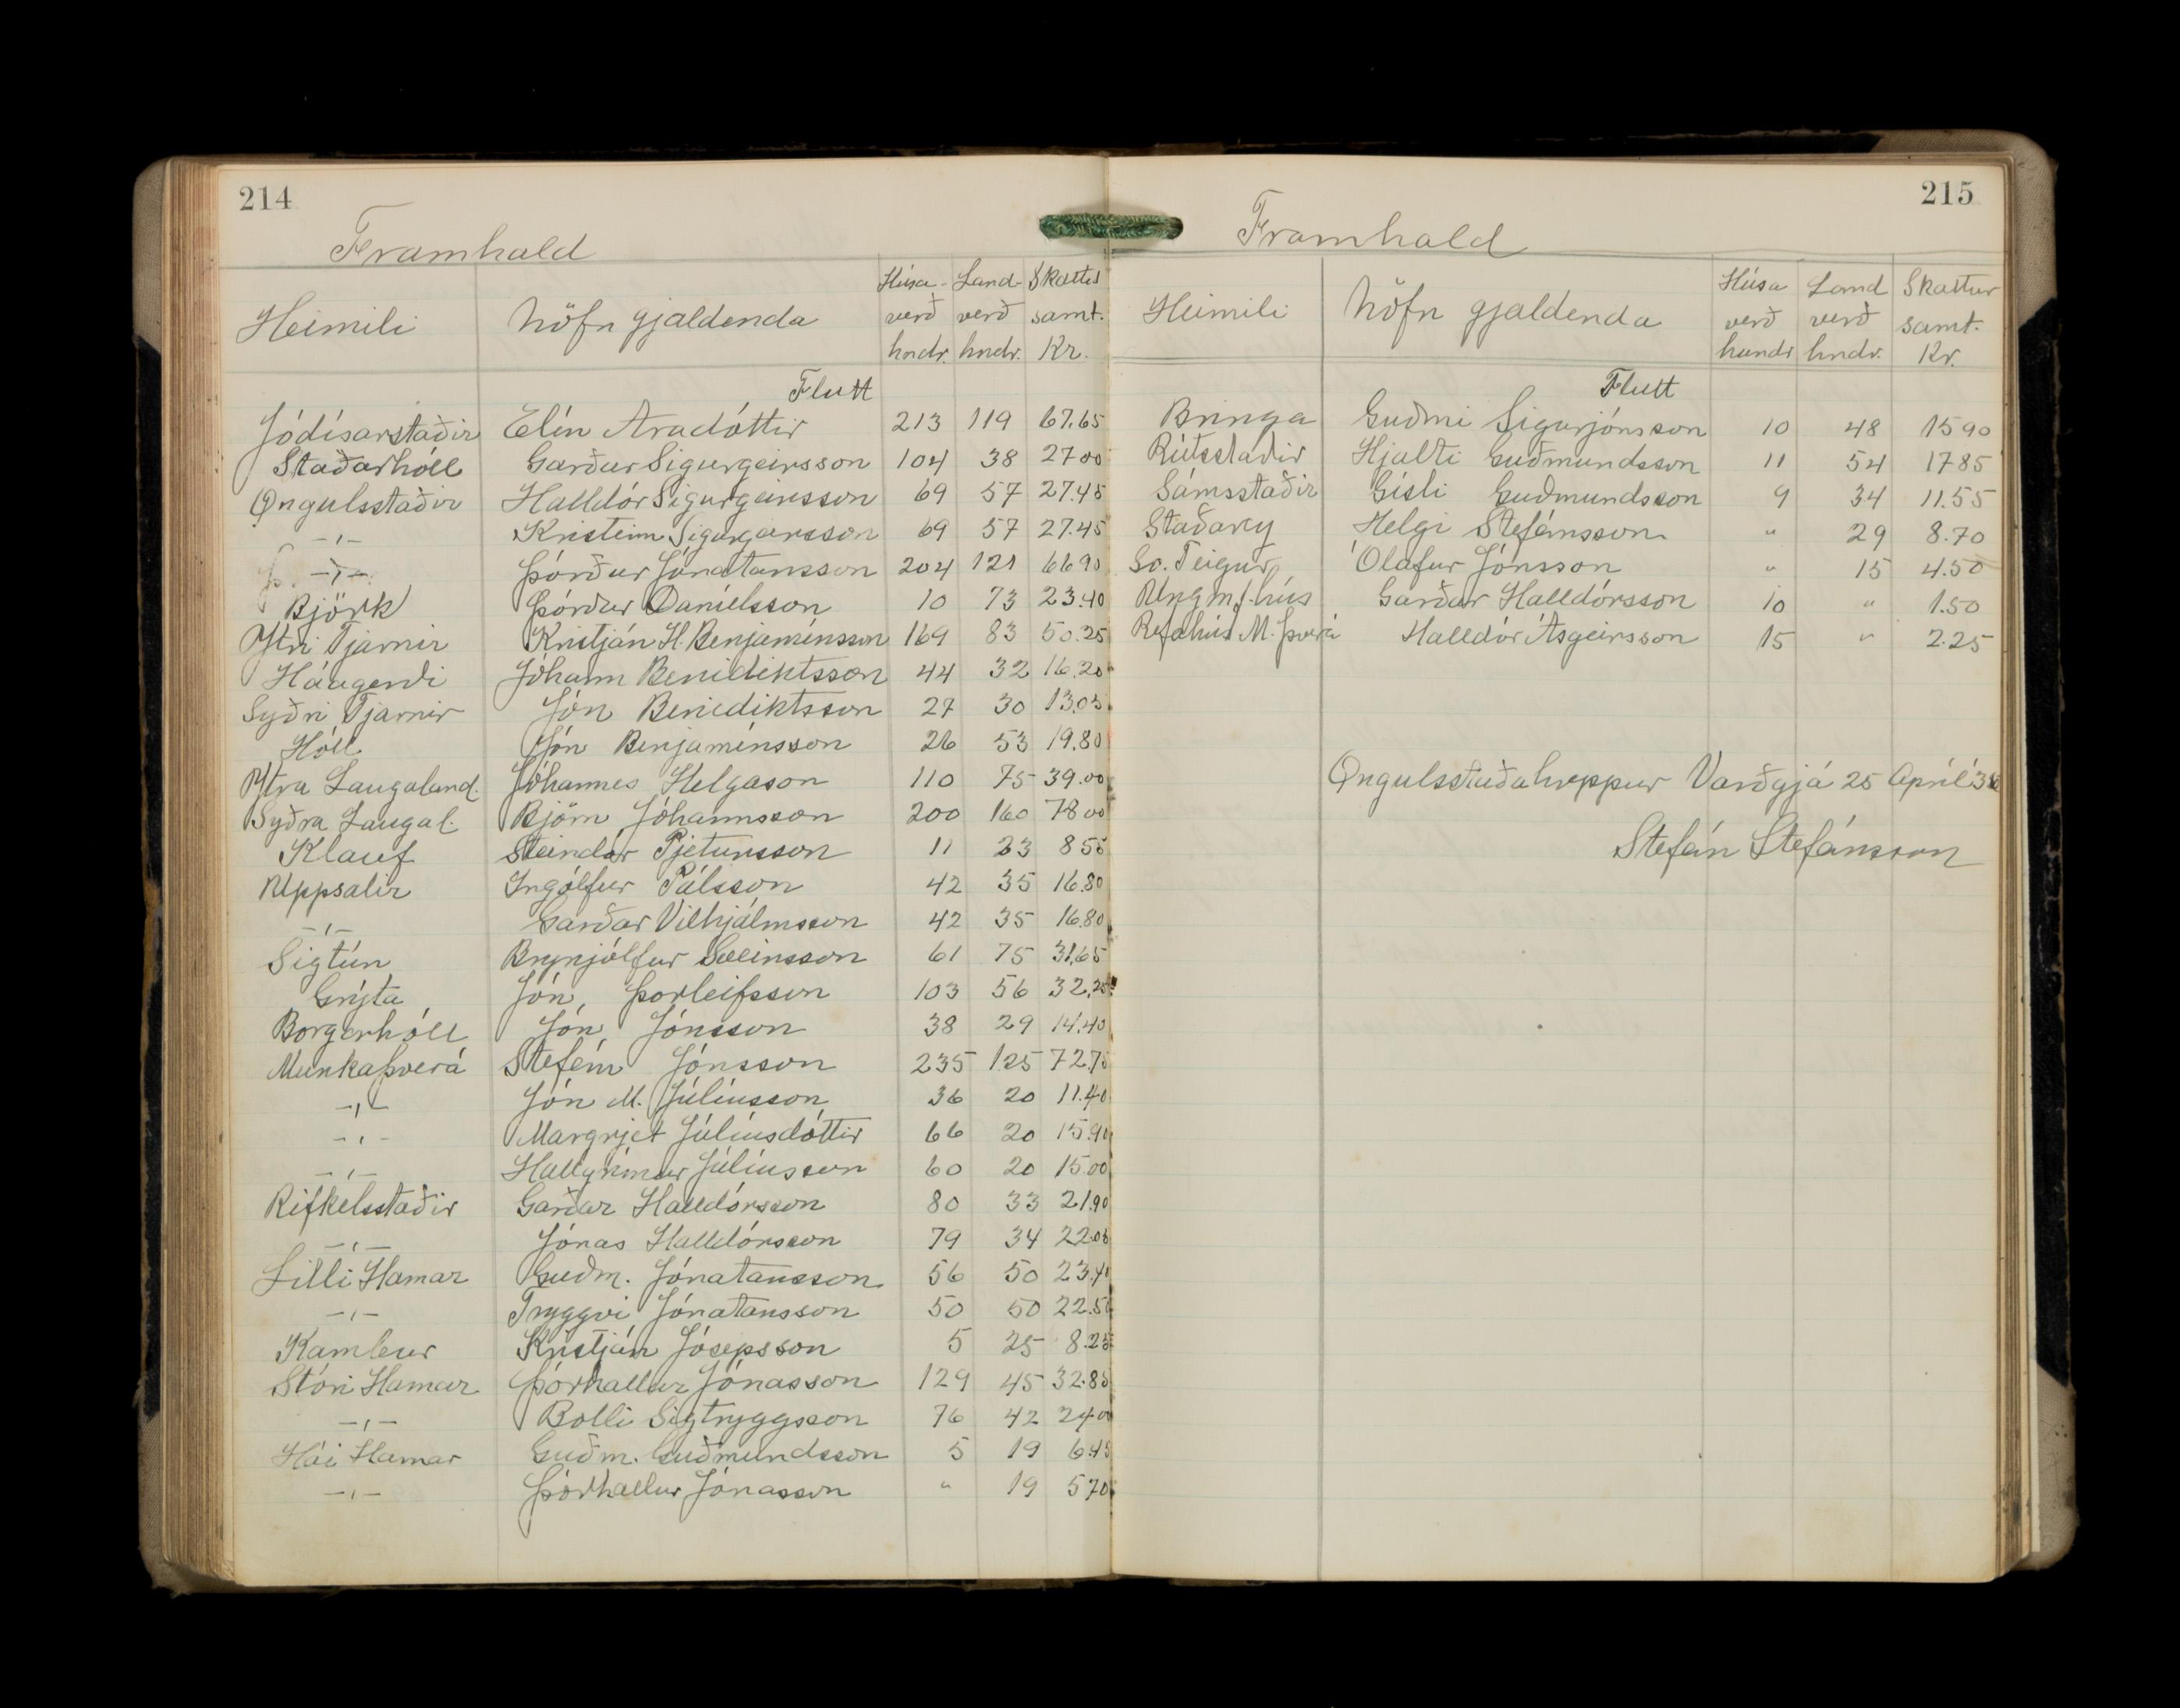 214
Framhald
Heimili Nöfn gjaldenda Húsa-verð hndr. Land-verð hndr. Skattur samt. Kr.
Flutt
Jódísarstaðir Elín Aradóttir 213 119 67.65
Staðarhóll Garðar Sigurgeirsson 104 38 27 00
Öngulsstaðir Halldór Sigurgeirsson 69 57 27.45
-,- Kristinn Sigurgeirsson 69 57 27.45
-,- Þórður Jónatansson 204 121 66 90
Björk Þórður Daníelsson 10 73 23.40
Ytri Tjarnir Kristján H. Benjamínsson 169 83 50.25
Háagerði Jóhann Benidiktsson 44 32 16.20
Syðri Tjarnir Jón Benediktsson 27 30 13.05
Hóll Jón Benjamínsson 26 53 19.80
Ytra Laugaland. Jóhannes Helgason 110 75 39.00
Syðra Laugal. Björn Jóhannsson 200 160 78 00
Klauf Steindór Pjetursson 11 23 8 55
Uppsalir Ingólfur Pálsson 42 35 16.80
-,- Garðar Vilhjálmsson 42 35 16.80
Sigtún Brynjólfur Sveinsson 61 75 31.65
Grýta Jón Þorleifsson 103 56 32.25
Borgarhóll Jón Jónsson 38 29 14.40
Munkaþverá Stefán Jónsson 235 125 72.75
-,- Jón M. Júlíusson 36 20 11.40
-,- Margrjet Júlíusdóttir 66 20 15.90
-,- Hallgrímur Júlíusson 60 20 15.00
Rifkelsstaðir Garðar Halldórsson 80 33 21.90
-,- Jónas Halldórsson 79 34 22.05
Litli Hamar Guðm. Jónatansson 56 50 23.40
-,- Tryggvi Jónatansson 50 50 22.50
Kambur Kristján Jósepsson 5 25 8.25
Stóri Hamar Þórhallur Jónasson 129 45 32.85
-,- Bolli Sigtryggsson 76 42 24 00
Hái Hamar Guðm. Guðmundsson 5 19 6.45
-,- Þórhallur Jónasson " 19 5 70
215
Framhald
Heimili Nöfn gjaldenda Húsa verð hundr Land verð hndr. Skattur samt. Kr.
Flutt
Bringa Guðmi Sigurjónsson 10 48 15 90
Rútsstaðir Hjalti Guðmundsson 11 54 17 85
Sámsstaðir Gísli Guðmundsson 9 34 11.55
Staðarey Helgi Stefánsson " 29 8.70
Sv. Teigur Ólafur Jónsson " 15 4.50
Ungmf.hús Garðar Halldórsson 10 " 1.50
Refahús M.þverá Halldór Ásgeirsson 15 " 2.25
Öngulsstaðahreppur Varðgjá 25 Apríl
Stefán Stefánsson